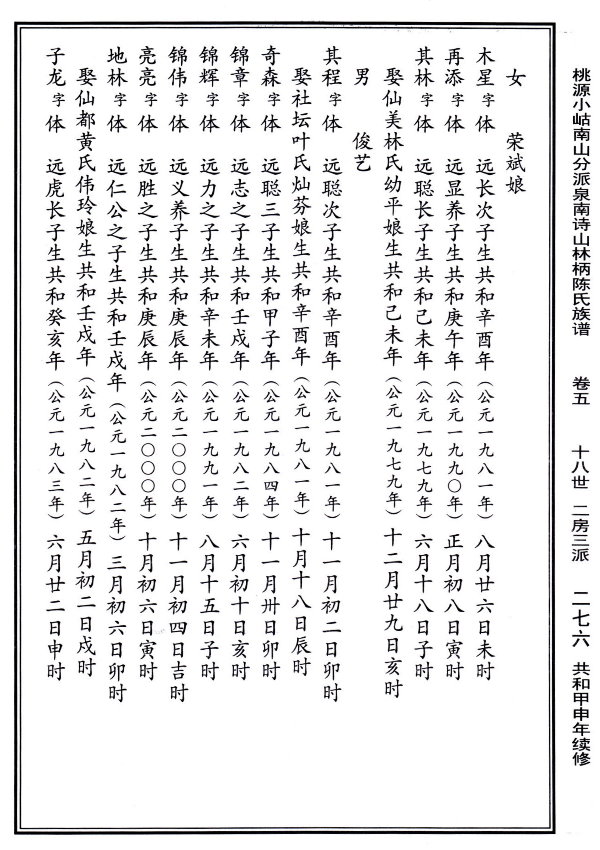 桃源小岵南山分派泉南诗山林柄陈氏族谱 卷五 十八世 二房三派 二七六 共和甲申年续修
女 荣斌娘
木星字体 远长次子生共和辛酉年（公元一九八一年）八月廿六日未时
再添字体 远显养子生共和庚午年（公元一九九〇年）正月初八日寅时
其林字体 远聪长子生共和己未年（公元一九七九年）六月十八日子时
娶仙美林氏幼平娘生共和己未年（公元一九七九年）十二月廿九日亥时
男 俊艺
其程字体 远聪次子生共和辛酉年（公元一九八一年）十一月初二日卯时
娶社坛叶氏灿芬娘生共和辛酉年（公元一九八一年）十月十八日辰时
奇森字体 远聪三子生共和甲子年（公元一九八四年）十一月卅日卯时
锦章字体 远志之子生共和壬戍年（公元一九八二年）六月初十日亥时
锦辉字体 远力之子生共和辛未年（公元一九九一年）八月十五日子时
锦伟字体 远义养子生共和庚辰年（公元二〇〇〇年）十一月初四日吉时
亮亮字体 远胜之子生共和庚辰年（公元二〇〇〇年）十月初六日寅时
地林字体 远仁公之子生共和壬戍年（公元一九八二年）三月初六日卯时
娶仙都黄氏伟玲娘生共和壬戍年（公元一九八二年）五月初二日戍时
子龙字体 远虎长子生共和癸亥年（公元一九八三年）六月廿二日申时